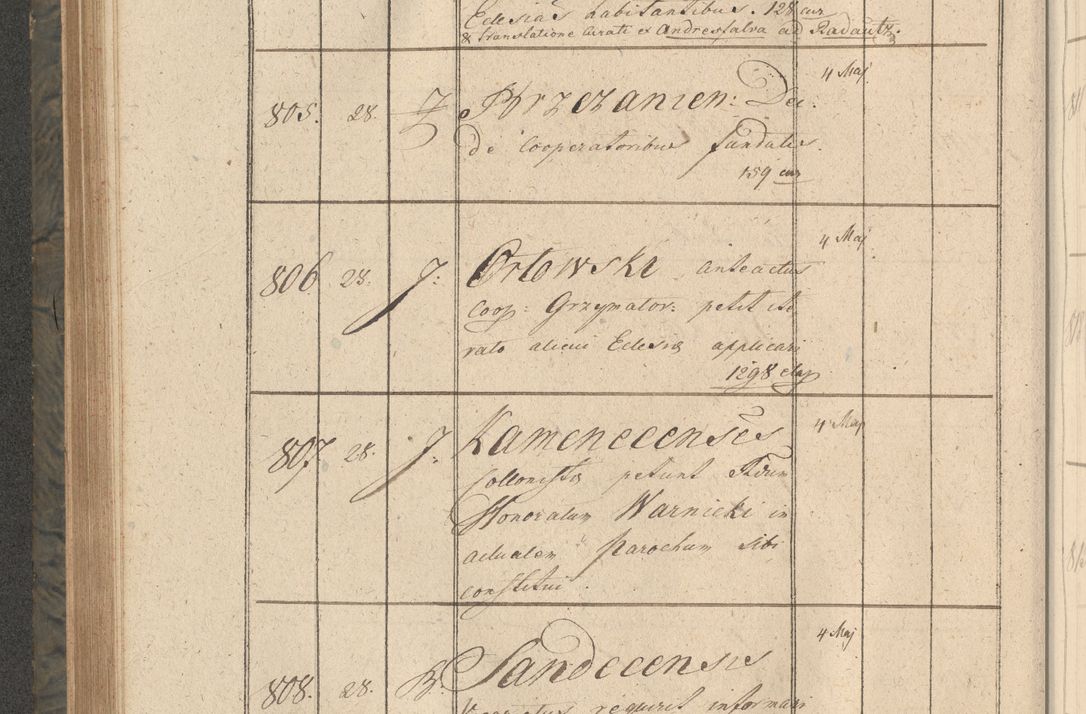 Eclesias habitantibus. 128 cur
& translatione Curati ex Andresfalva ad Radautz.
805. 28. J Brzezanien: Dec. 4 Maj
de Cooperatoribus fundatis.
159 cur
806 28. J: Orłowski anteactus 4 Maj
Coop: Grzymalov: petit ite
rato alicui Eclesiæ applicari
1298 elap
807 28. J: Kamenecenses 4 Maj
Collonistæ petunt Rdum
Honoratum Warnicki in
actualem Parochum sibi
constitui
808. 28. B: Sandecensis 4 Maj
requirit informari